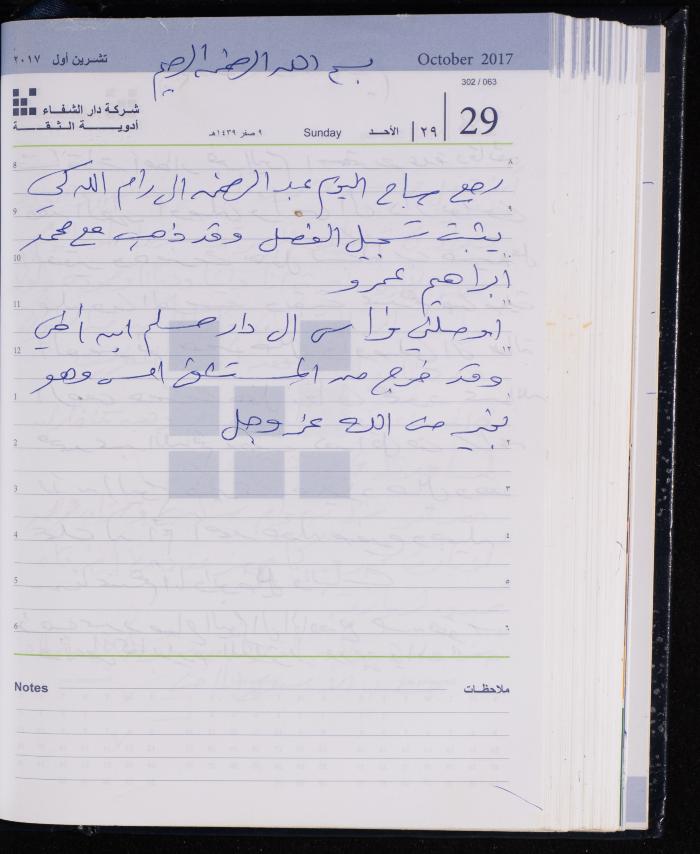 تشرين أول ٢٠١٧
بسم الله الرحمن الرحيم
October 2017
302 / 063
شركة دار الشفاء
أدوية الثقة
٩ صفر ١٤٣٩هـ
Sunday
الأحد
٢٩
29
8 ٨
رجع صباح اليوم عبد الرحمن الى رام الله كي
9 ٩
يثبت تسجيل الفصل وقد ذهب مع محمد
10 ١٠
ابراهيم عمرو
11 ١١
اوصلني فراس الى دار مسلم ابن اخي
12 ١٢
وقد خرج من المستشفى امس وهو
1 ١
بخير من الله عز وجل
2 ٢
3 ٣
4 ٤
5 ٥
6 ٦
Notes ملاحظات